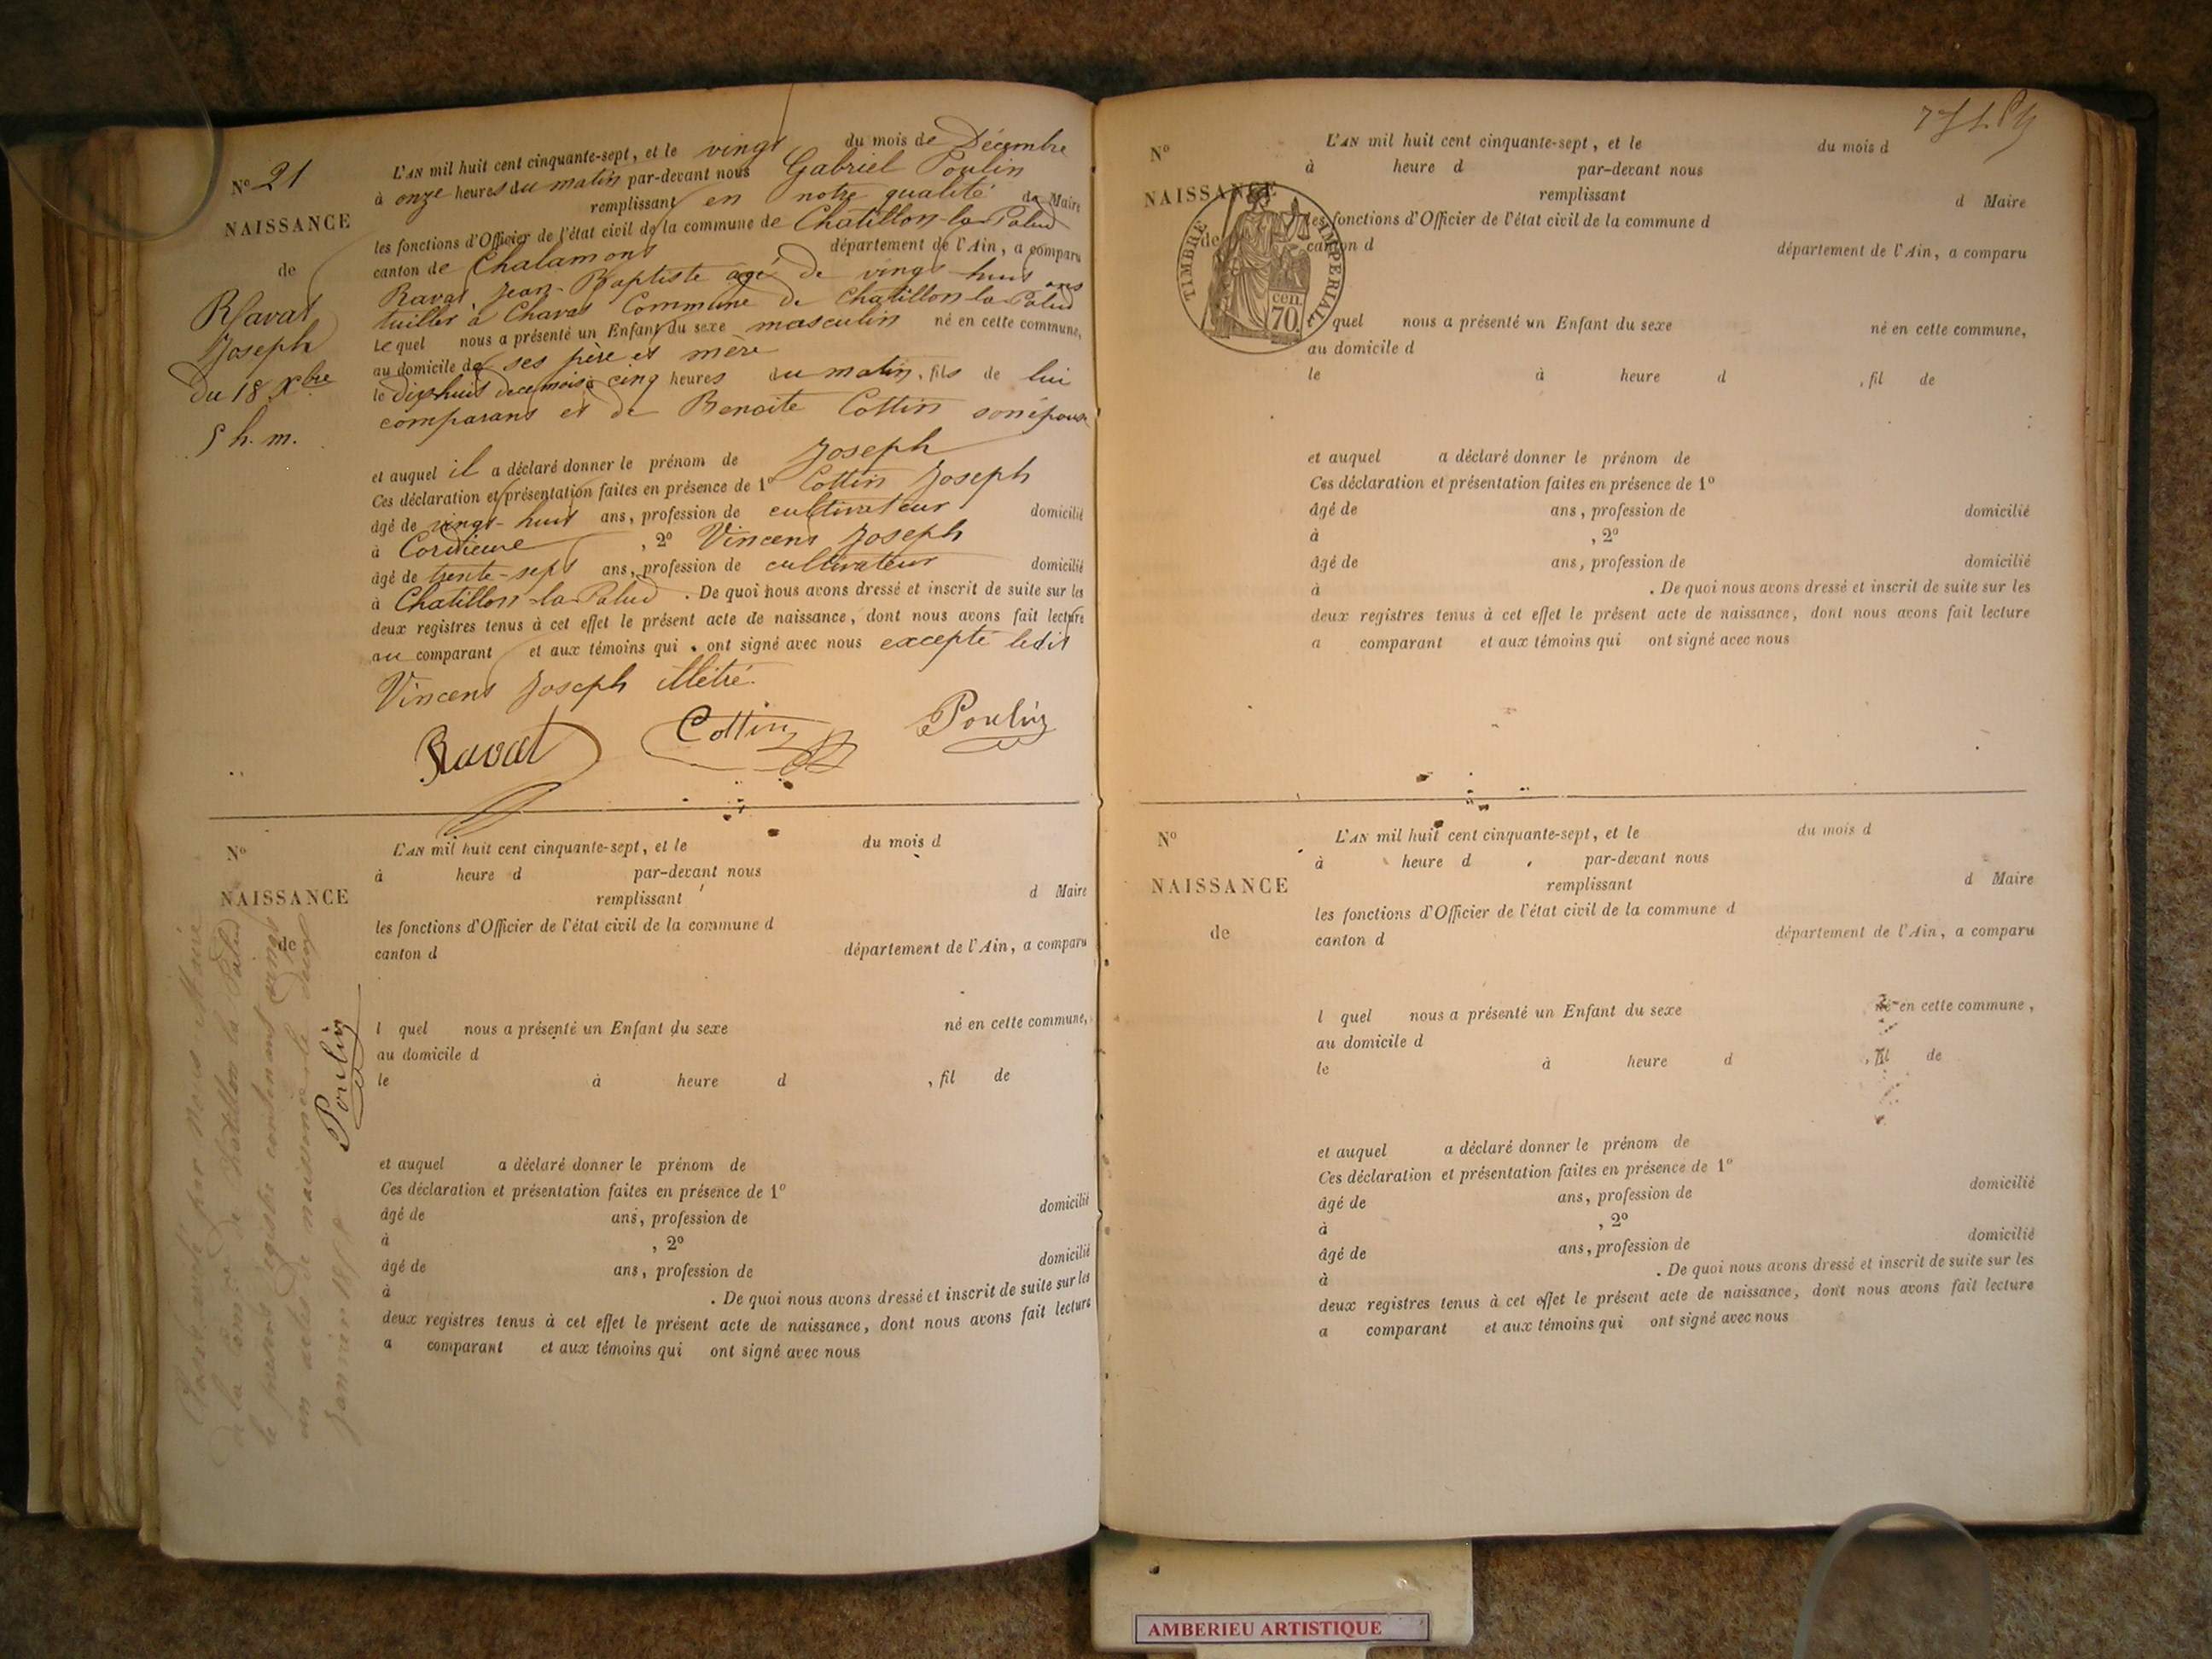 N° 21
NAISSANCE
de
Ravat
Joseph
du 18 Xbre
5 h. m.
L'AN mil huit cent cinquante-sept, et le vingt du mois de Décembre
à onze heures du matin par-devant nous Gabriel Poulin
remplissant en notre qualité de Maire
les fonctions d'Officier de l'état civil de la commune de Chatillon-la-Palud
canton de Chalamont département de l'Ain, a comparu
Ravat, Jean-Baptiste âgé de vingt-huit ans
tuilier à Chavat Commune de Chatillon-la-Palud
Lequel nous a présenté un Enfant du sexe masculin né en cette commune,
au domicile de ses père et mère
le dix-huit de ce mois à cinq heures du matin, fils de lui
comparant et de Benoite Cottin son épouse
et auquel il a déclaré donner le prénom de Joseph
Ces déclaration et présentation faites en présence de 1° Cottin Joseph
âgé de vingt-huit ans, profession de cultivateur domicilié
à Cordieux , 2° Vincent Joseph
âgé de trente-sept ans, profession de cultivateur domicilié
à Chatillon-la-Palud . De quoi nous avons dressé et inscrit de suite sur les
deux registres tenus à cet effet le présent acte de naissance, dont nous avons fait lecture
au comparant et aux témoins qui ont signé avec nous excepté ledit
Vincent Joseph illétré.
Ravat Cottin Poulin
N°
NAISSANCE
de
L'AN mil huit cent cinquante-sept, et le du mois d
à heure d par-devant nous
remplissant d Maire
les fonctions d'Officier de l'état civil de la commune d
canton d département de l'Ain, a comparu
l quel nous a présenté un Enfant du sexe né en cette commune,
au domicile d
le à heure d , fil de
et auquel a déclaré donner le prénom de
Ces déclaration et présentation faites en présence de 1°
âgé de ans, profession de domicilié
à , 2°
âgé de ans, profession de domicilié
à . De quoi nous avons dressé et inscrit de suite sur les
deux registres tenus à cet effet le présent acte de naissance, dont nous avons fait lecture
a comparant et aux témoins qui ont signé avec nous
par nous Maire
de la de Chatillon la Palud
le présent registre contenant vingt
un actes de naissance le deux
Janvier 185
Poulin
N°
NAISSANCE
de
TIMBRE IMPERIAL
70 cen.
L'AN mil huit cent cinquante-sept, et le du mois d
à heure d par-devant nous
remplissant d Maire
les fonctions d'Officier de l'état civil de la commune d
canton d département de l'Ain, a comparu
quel nous a présenté un Enfant du sexe né en cette commune,
au domicile d
le à heure d , fil de
et auquel a déclaré donner le prénom de
Ces déclaration et présentation faites en présence de 1°
âgé de ans, profession de domicilié
à , 2°
âgé de ans, profession de domicilié
à . De quoi nous avons dressé et inscrit de suite sur les
deux registres tenus à cet effet le présent acte de naissance, dont nous avons fait lecture
a comparant et aux témoins qui ont signé avec nous
N°
NAISSANCE
de
L'AN mil huit cent cinquante-sept, et le du mois d
à heure d par-devant nous
remplissant d Maire
les fonctions d'Officier de l'état civil de la commune d
canton d département de l'Ain, a comparu
l quel nous a présenté un Enfant du sexe né en cette commune,
au domicile d
le à heure d , fil de
et auquel a déclaré donner le prénom de
Ces déclaration et présentation faites en présence de 1°
âgé de ans, profession de domicilié
à , 2°
âgé de ans, profession de domicilié
à . De quoi nous avons dressé et inscrit de suite sur les
deux registres tenus à cet effet le présent acte de naissance, dont nous avons fait lecture
a comparant et aux témoins qui ont signé avec nous
AMBERIEU ARTISTIQUE